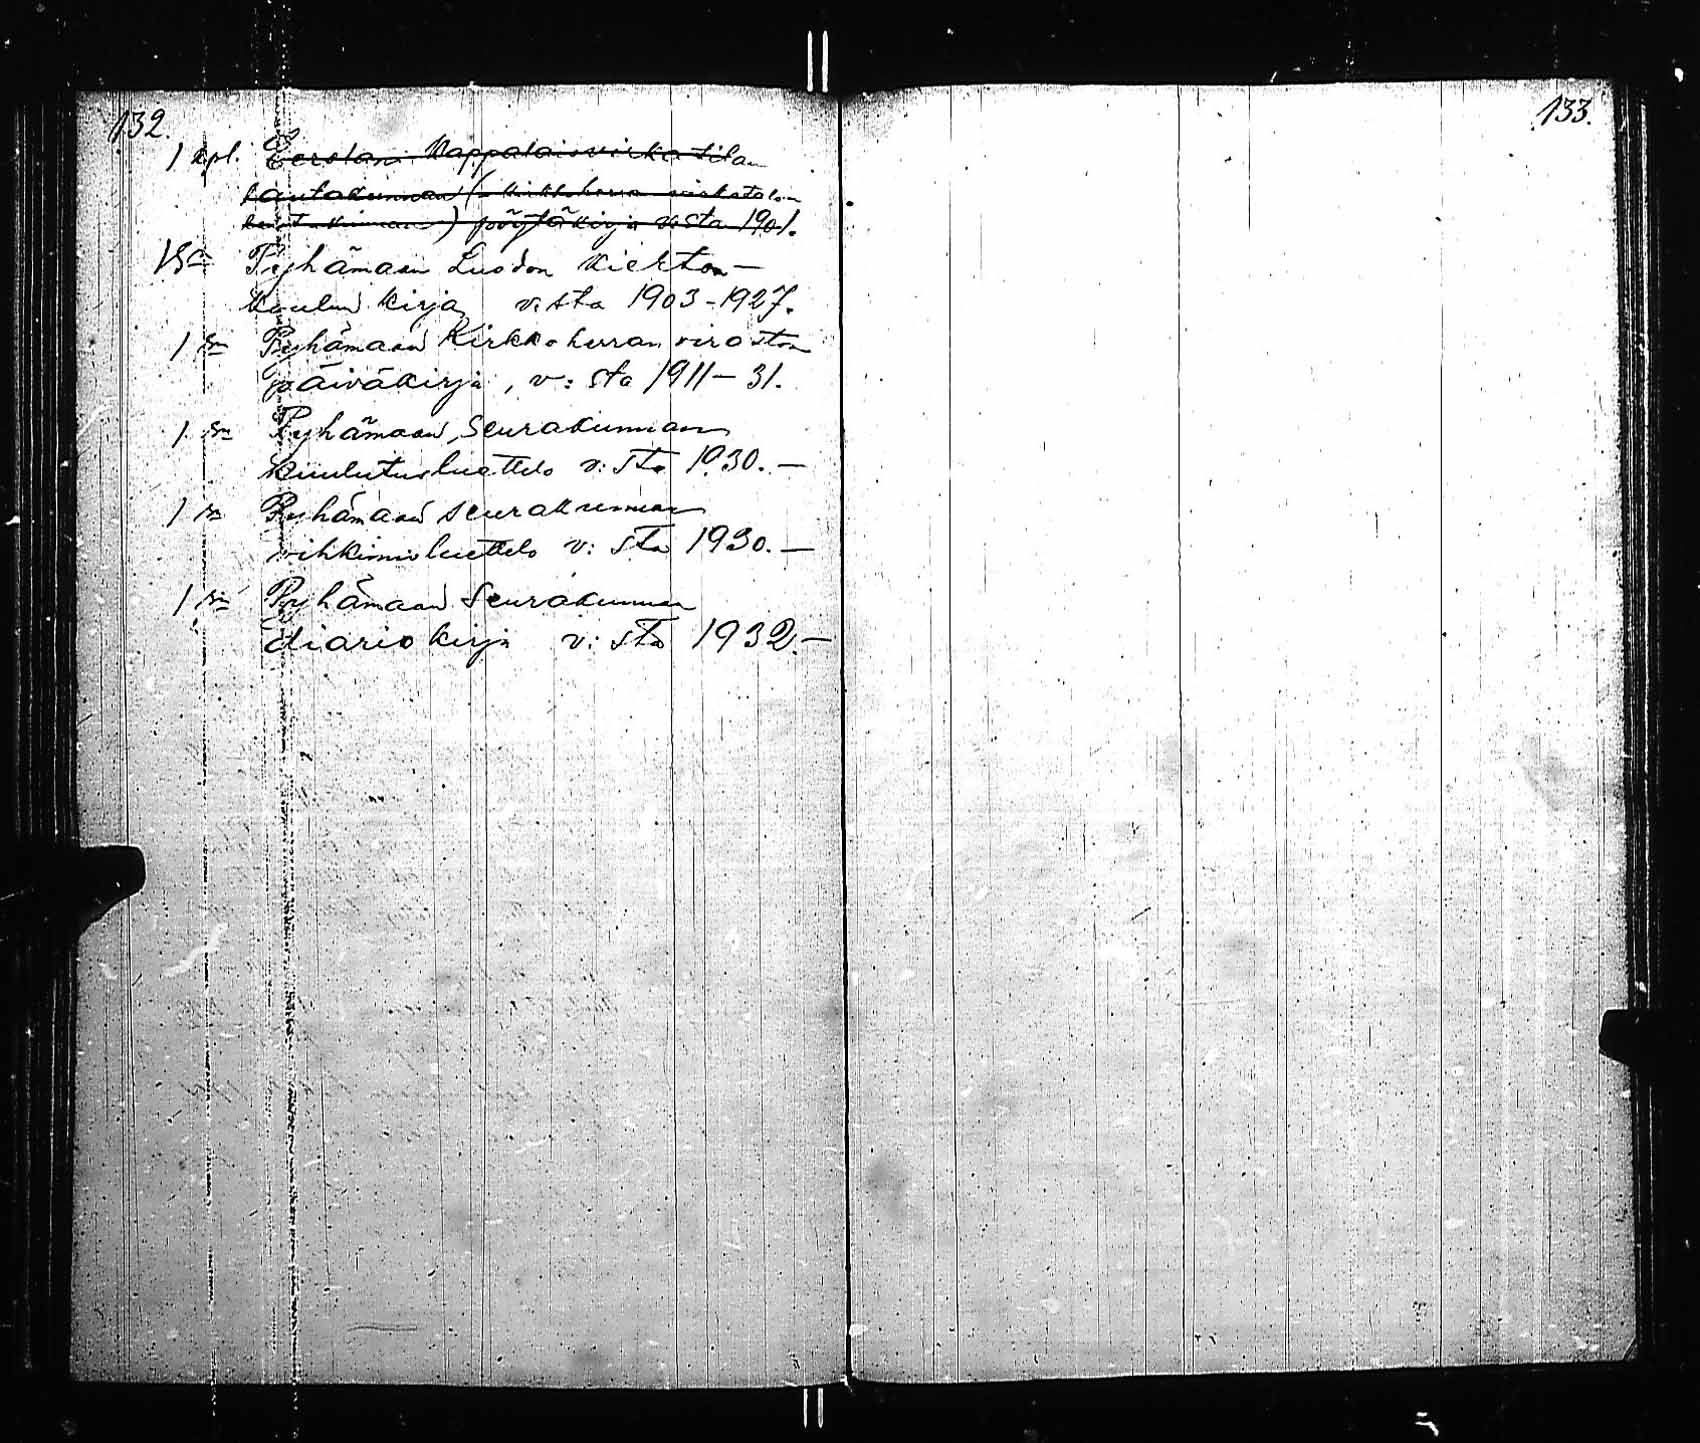 132.
1 kpl. Eerolan Kappalaisvirkatilan
lautakunnan (= kirkkoherra virkatalon
lautakunnan) pöytäkirja v:sta 1901.
1 Sa Pyhämaan Luodon Kierto-
koulun kirja v:sta 1903-1927.
1 Sa Pyhämaan Kirkkoherranviraston
päiväkirja, v:sta 1911-31.
1 Sa Pyhämaan Seurakunnan
kuulutusluettelo v:sta 1930.-
1 Sa Pyhämaan seurakunnan
vihkimisluettelo v:sta 1930.-
1 Sa Pyhämaan Seurakunnan
diariokirja v:sta 1932.-
133.